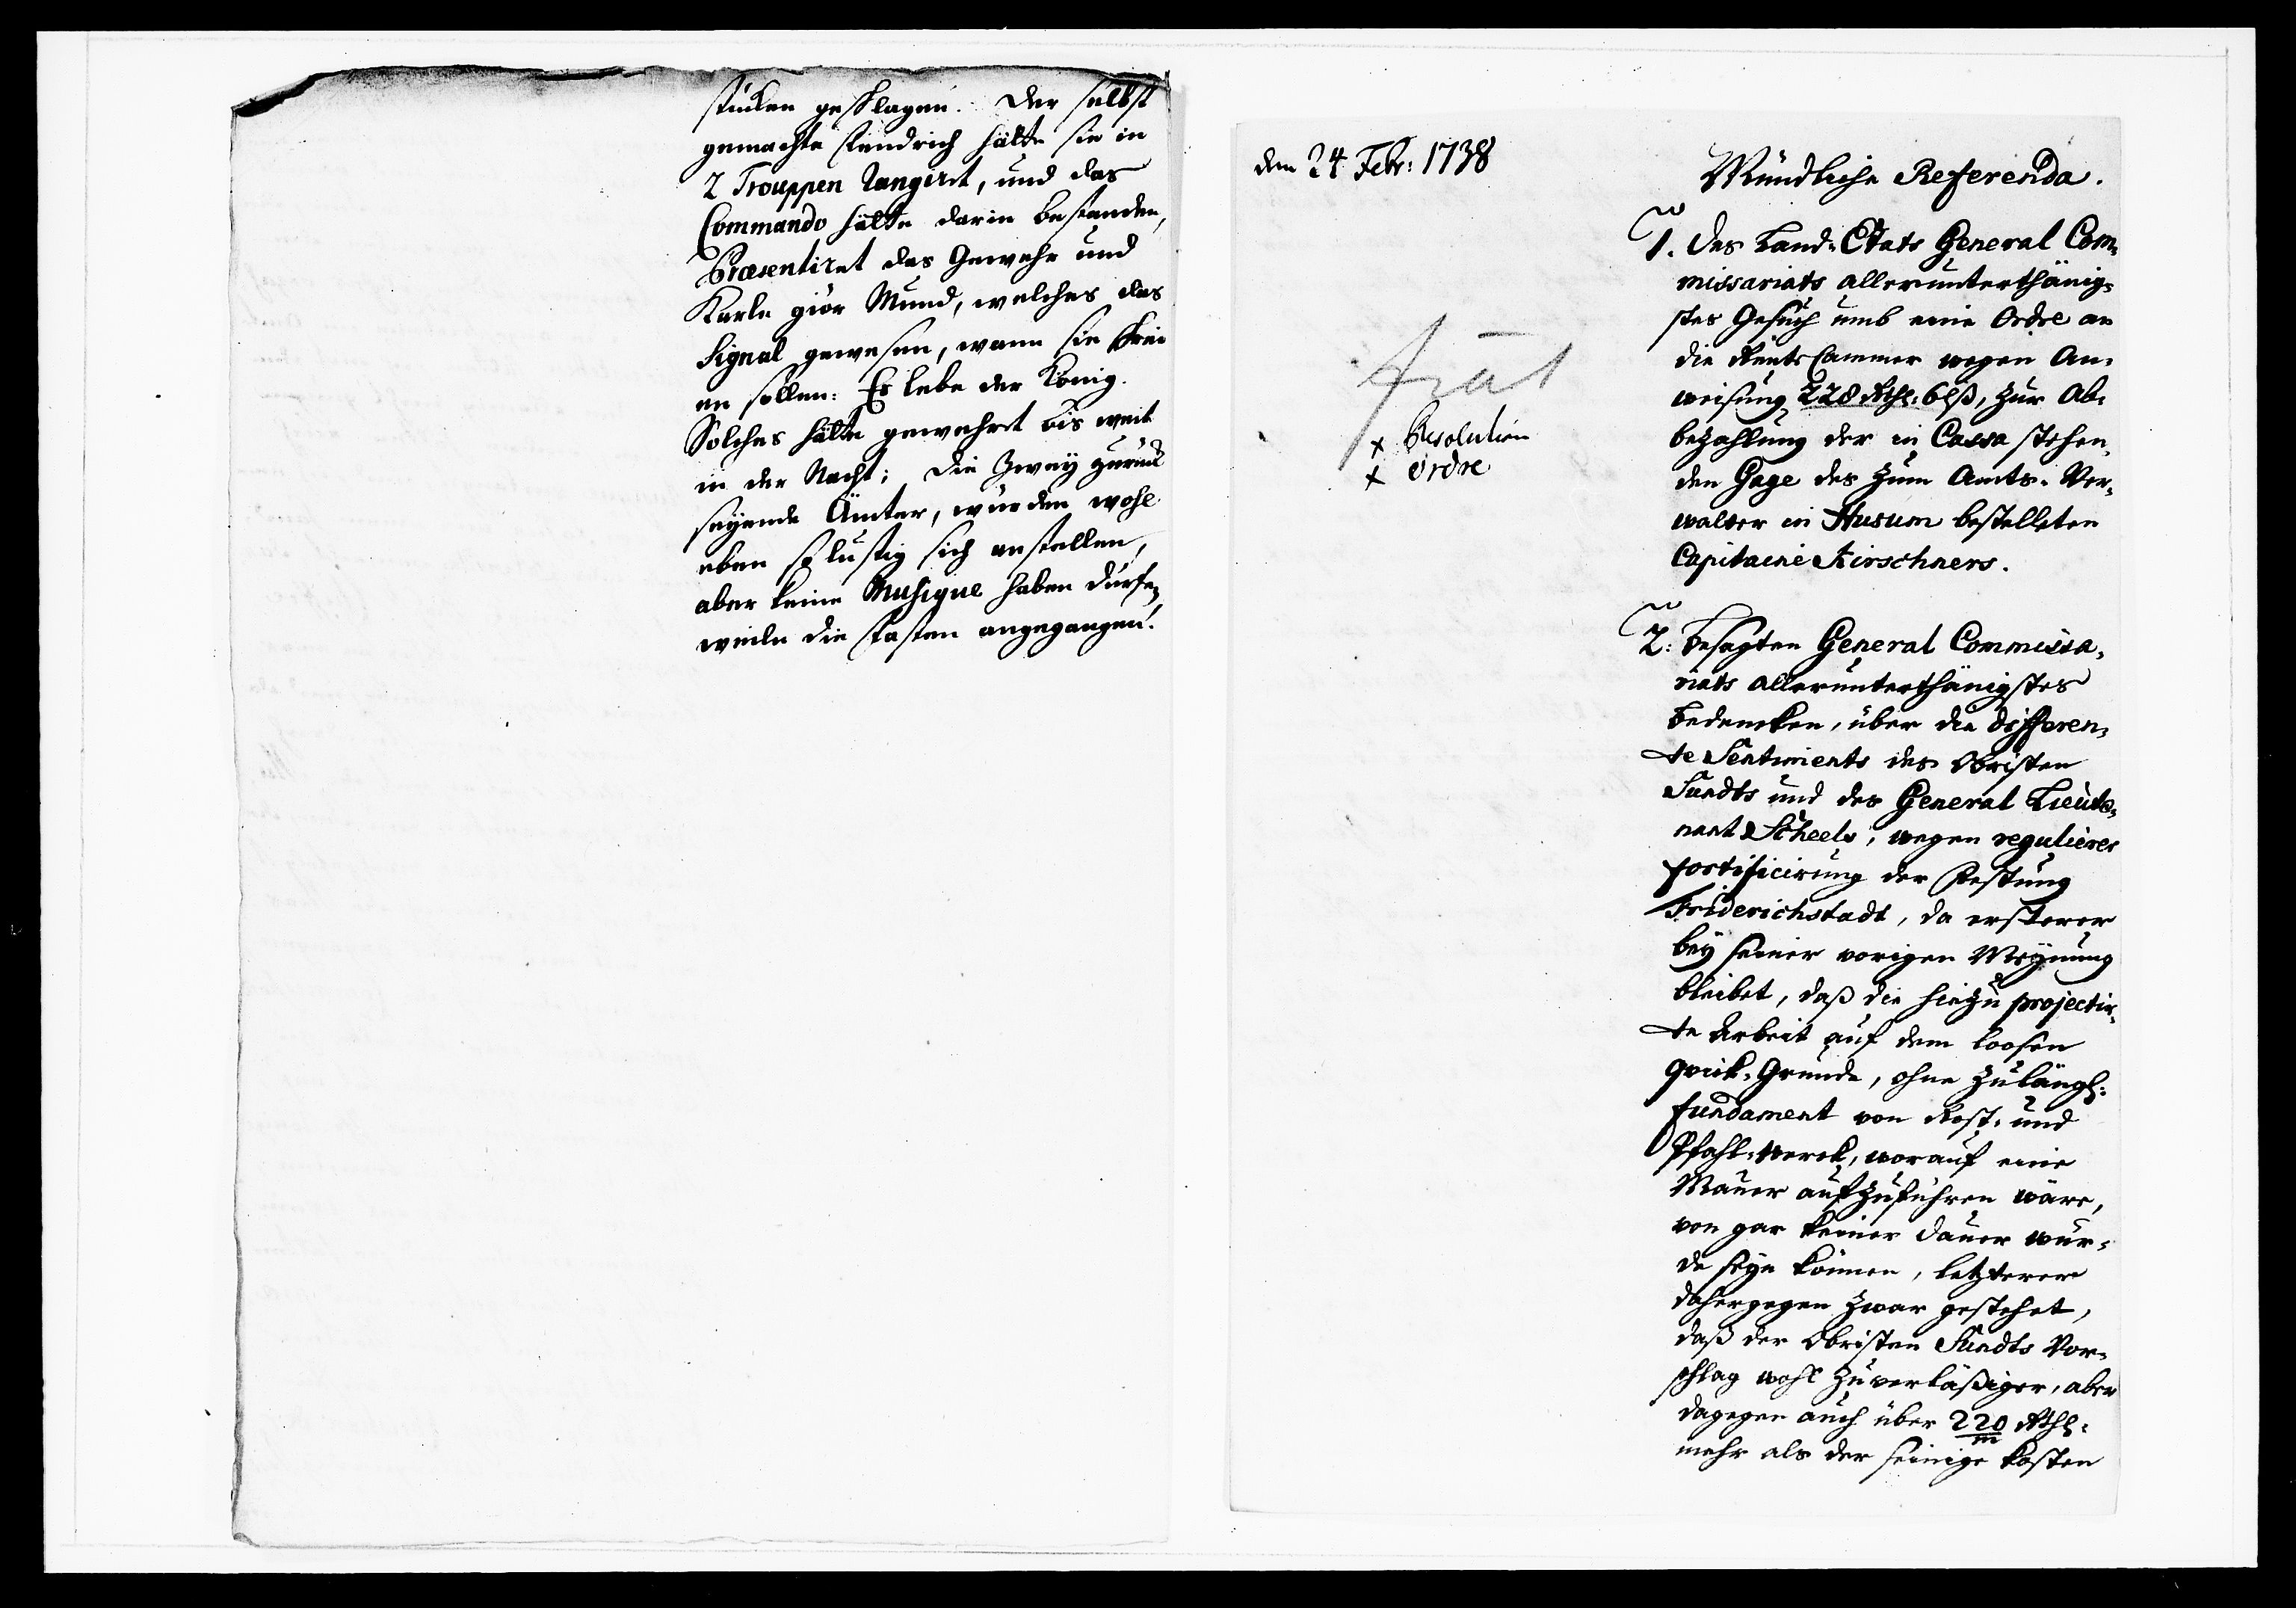 stücken geschlagen. Der selbst
gemachte Fendrich hätte sie in
2 Trouppen rangiret, und das
Commando hätte darin bestanden,
Præsentiret das Gewehr und
Karle giör Mund, welches das
Signal gewesen, wann sie schrei
en sollen: Es lebe der König.
Solches hätte gewehret bis weit
in der Nacht; die Zweÿ zurück
seÿende Ämter, würden wohl
eben so lustig sich anstellen,
aber keine Musique haben dürfen,
weile die Fasten angegangen.
den 24 Febr: 1738
Mündliche Referenda.
1. Des Land-Etats General Com-
missariats allerunterthänig-
stes Gesuch umb eine Ordre an
die RenteCammer wegen An-
weisung 228 Rthl: 6 lß, zur Ab-
bezahlung der in Cassa stehen-
den Gage des zum Amts-Ver-
walter in Husum bestelleten
Capitaine Kirschners.
× Resolution
× Ordre
2: Besagten General Commissa-
riats allerunterthänigstes
Bedencken, über die differen-
te Sentiments des Obristen
Sundts und des General Lieute-
nant Scheels, wegen regulierer
fortificirung der Festung
Friderichstadt, da ersterer
beÿ seiner vorigen Meÿnung
bleibet, daß die hiezu projectir-
te Arbeit auf dem loosen
Qvick-Grunde, ohne zulängl:
fundament von Rost- und
Pfahl-Werck, worauf eine
Mauer aufzuführen wäre,
von gar keiner Dauer wür-
de seÿn können, letzterer
dahergegen zwar gestehet,
daß der Obristen Sundts Vor-
schlag wohl zuverläßiger, aber
dagegen auch über 220/m Rthl:
mehr als der seinige kosten